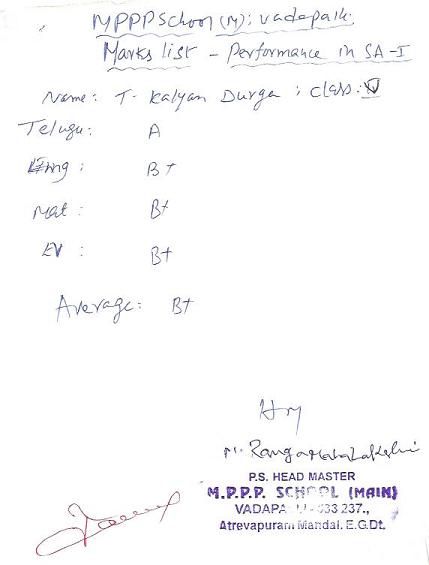 MPPPSchool (M): Vadapalli
Marks list - Performance in SA-I
Name: T. Kalyan Durga; class: V
Telugu: A
Eng: B+
Mat: B+
EV: B+
Average: B+
HM
P.S. HEAD MASTER
M.P.P.P. SCHOOL (MAIN)
Atreyapuram Mandal. E.G.Dt.